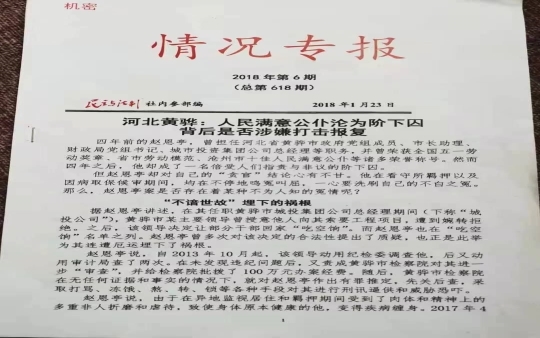 机密
情况专报
2018年第6期
(总第618期)
民主与法制 社内参部编 2018年1月23日
河北黄骅：人民满意公仆沦为阶下囚
背后是否涉嫌打击报复
四年前的赵恩亭，曾担任河北省黄骅市政府党组成员、市长助理、
财政局党组书记、城市投资集团公司总经理等职务，并曾荣获全国五一劳
动奖章、省市劳动模范、沧州市十佳人民满意公仆等诸多荣誉称号。然而
四年之后，他却成了一名倍受人们指责与非议的阶下囚。
但赵恩亭却对自己的“贪官”结论心有不甘。他在看守所羁押以及
因病取保候审期间，均在不停地鸣冤叫屈，一心要洗刷自己的不白之冤。
那么，赵恩亭案是否存在着某种不为人知的冤情呢？
“不谙世故”埋下的祸根
据赵恩亭讲述，在其任职黄骅市城投集团公司总经理期间（下称“城
投公司”），黄骅市某主要领导授意他人向其索要工程项目，遭到婉转拒
绝。之后，该领导决定让部分干部回家“吃空饷”。而赵恩亭也在“吃空
饷”名单之列。赵恩亭曾多次对该决定的合法性提出了质疑，也正是此举
为其连遭厄运埋下了祸根。
赵恩亭说，自2013年10月起，该领导动用纪检委调查他，后又动
用审计局查了两次。在未发现违纪问题后，又责成黄骅市检察院对其进一
步“审查”，并给检察院批拨了100万元办案经费。随后，黄骅市检察院
在无任何证据和事实的情况下，就对赵恩亭作出有罪推定，先关后查，采
取打骂、冻饿、熬、转、锁等各种手段对其进行刑讯逼供和威胁恐吓。
赵恩亭说，由于在异地监视居住和羁押期间受到了肉体和精神上的
多重非人折磨和虐待，致使身体原本健康的他，变得疾病缠身。2017年4